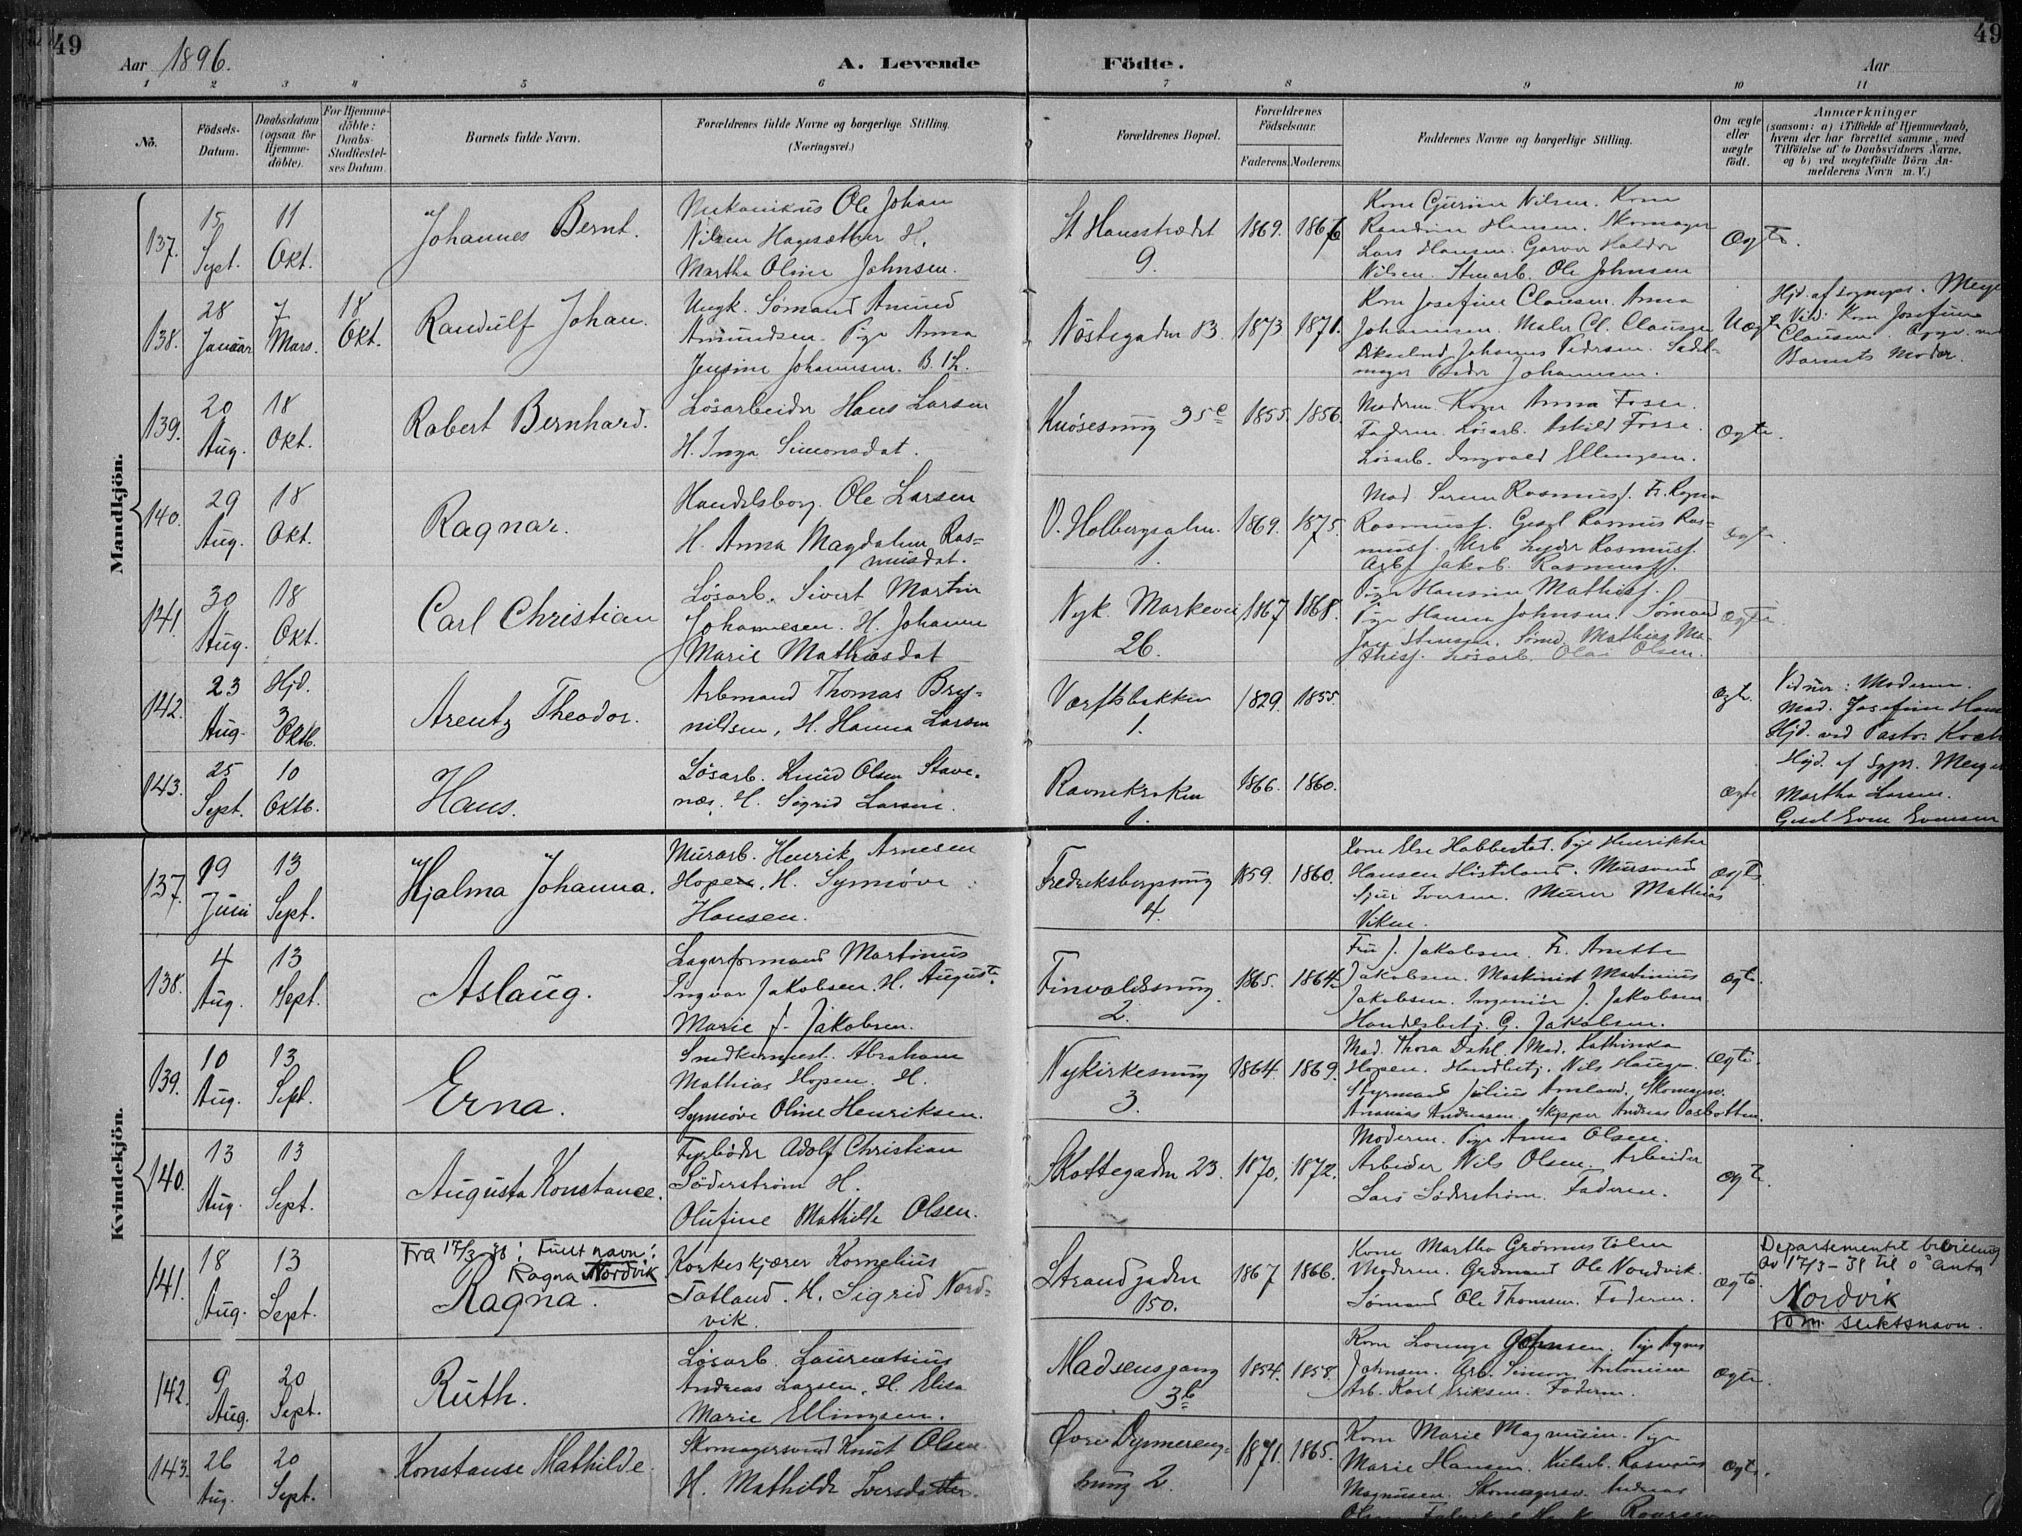 49
Aar 1896.
A. Levende
Födte.
Aar
49
1 2 3 4 5 6 7 8 9 10 11
No.
Födsels-
Datum.
Daabsdatum
(ogsaa for
Hjemme-
döbte).
For Hjemme-
döbte:
Daabs-
Stadfæstel-
ses Datum.
Barnets fulde Navn.
Forældrenes fulde Navne og borgerlige Stilling.
(Næringsvei.)
Forældrenes Bopæl.
Forældrenes
Födselsaar.
Faderens. Moderens.
Faddernes Navne og borgerlige Stilling.
Om ægte
eller
uægte
födt.
Anmærkninger
(saasom: a) i Tilfælde af Hjemmedaab,
hvem der har forrettet samme, med
Tilföielse af to Daabsvidners Navne,
og b) ved uægtefödte Börn An-
melderens Navn m. V.)
Mandkjön.
137.
15
Sept.
11
Okt.
Johannes Bernt.
Mekanikus Ole Johan
Nilsen Hagesæther H.
Martha Oline Johnsen.
St Hansstrædet
9.
1869. 1867
Kone Gurine Nilsen. Kone
Randine Hansen. Skomager
Lars Hansen. Garver Haldor
Nilsen. Stuarb. Ole Johnsen
Ægte.
138.
28
Januar
7
Mars.
18
Okt.
Randulf Johan.
Ungk. Sømand Amund
Amundsen. Pige Anna
Jensine Johannesen. B. 1ste L.
Nøstegaden 13.
1873 1871.
Kone Josefine Clausen. Anna
Johannesen. Maler Cl. Clausen
Johannes Pedersen. Sadel-
mager Peder Johannesen.
Uægte
Hjd. af sognepr. Meyer
Vid: Kone Josefine
Clausen. Opgv. ved
Barnets Moder.
139.
20
Aug.
18
Okt.
Robert Bernhard.
Løsarbeider Hans Larsen
H. Inga Simonsdat.
Knøsesmug 35c
1855. 1856.
Moderen. Kone Anna Fosse.
Faderen. Løsarb. Askild Fosse.
Løsarb. Ingvald Ellingsen.
Ægte.
140.
29
Aug.
18
Okt.
Ragnar.
Handelsborg. Ole Larsen
H. Anna Magdalene Ras-
musdat.
V. Holbergsalm.
1.
1869. 1875.
Mad Serine Rasmuss. Fr. Ragna
Rasmuss. Gesel Rasmus Ras-
muss. Arb Lyder Rasmuss.
Arb Jakob Rasmuss.
Ægte.
141.
30
Aug.
18
Okt.
Carl Christian
Løsarb. Sivert Martin
Johannesen. H. Johanne
Marie Mathiasdat
Nyk. Markevei
26.
1867 1868.
Pige Hansine Mathiss.
Pige Hanna Johnsen. Sømand
Jan Stensen. Sømd. Mathias Ma-
thiss. Løsarb. Olai Olsen.
Ægte.
142.
23
Aug.
Hjd.
3
Oktb.
Arentz Theodor.
Arbmand Thomas Bry-
nildsen, H. Hanna Larsen
Værftsbakken
1.
1829. 1855.
ægte.
Vidner: Moderen.
Mad. Josefine Hans
Hjd. ved Pastor
143.
25
Sept.
10
Oktb.
Hans.
Løsarb. Knud Olsen Stave-
næs, H. Sigrid Larsen.
Ravnekroken
1.
1866. 1860.
ægte
Hjd. af Sgpr. Meyer
Martha Larsen.
Gesel Even Evensen
Kvindekjön.
137.
19
Juni
13
Sept.
Hjalma Johanna.
Murarb. Henrik Arnesen
Hopen, H. Synnøve
Hansen.
Fredriksbergsmug
4.
1859. 1860.
Kone Else Habbestad. Pige Henrikke
Hansen Murersvend
Sjur Iversen. Murer Mathias
Viken.
Ægte.
138.
4
Aug.
13
Sept.
Aslaug.
Lagerformand Martinus
Ingvar Jakobsen. H. Auguste
Marie f. Jakobsen.
Finvaldssmug.
2.
1865. 1864.
Fru J. Jakobsen. Fr. Anette
Jakobsen. Maskinist Martinius
Jakobsen. Ingeniør J. Jakobsen.
Handelsbetj. G. Jakobsen.
ægte.
139.
10
Aug.
13
Sept.
Erna.
Snedkermest. Abraham
Mathias Hopen. H.
Synnøve Oline Henriksen.
Nykirkesmug
3.
1864. 1869.
Mad. Thora Dahl. Mad. Kathinka
Hopen. Handbetj. Nils Haugen.
Styrmand Julius Amland. Skomagersv.
Ananias Andreasen. Skipper Andreas Vasbotten.
Ægte.
140.
13
Aug.
13
Sept.
Augusta Konstance.
Fyrbøder Adolf Christian
Söderström H.
Olufine Mathilde Olsen.
Skottegaden 23.
1870. 1872.
Moderen. Pige Anna Olsen.
Arbeider Nils Olsen. Arbeider
Lars Söderström. Faderen.
Ægte.
141.
18
Aug.
13
Sept.
Fra 17/3 38: Fullt navn:
Ragna Nordvik
Ragna.
Korkeskjærer Kornelius
Totland. H. Sigrid Nord-
vik.
Strandgaden
150.
1867 1866.
Kone Martha Grønnestølen
Moderen. Grdmand Ole Nordvik.
Sømand Ole Thomsen. Faderen.
Ægte.
Departementet bevilling
av 17/3-38 til å anta
Nordvik
som slektsnavn.
142.
9
Aug.
20
Sept.
Ruth.
Løsarb. Laurentsius
Andreas Larsen, H. Elisa
Marie Ellingsen.
Madsensgang
3b
1854. 1858.
Kone Lovise Johnsen. Pige Agnes
Johnsen. Arb. Simon Antonisen
Arb. Karl Eriksen. Faderen.
Ægte.
143.
26
Aug.
20
Sept.
Konstanse Mathilde.
Skomagersvend Knut Olsen.
H. Mathilde Iversdatter.
Øvre Dyvmereng-
smug 2.
1871. 1865.
Kone Marie Magnusen. Pige
Marie Hansen. Rasmus
Magnusen. Skomagersv. Andreas
Olsen
Ægte.